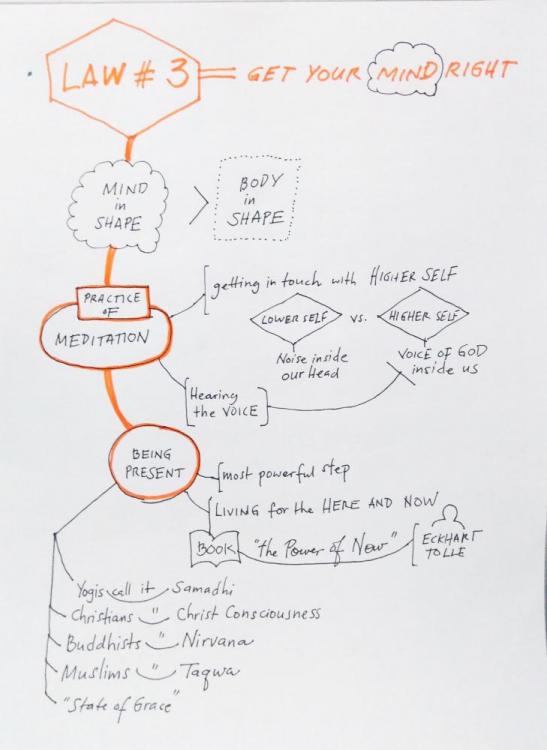 LAW # 3 = GET YOUR MIND RIGHT
MIND
in
SHAPE
>
BODY
in
SHAPE
PRACTICE
OF
MEDITATION
getting in touch with HIGHER SELF
LOWER SELF vs. HIGHER SELF
Noise inside
our Head
VOICE OF GOD
inside us
Hearing
the VOICE
BEING
PRESENT
most powerful step
LIVING for the HERE AND NOW
BOOK "the Power of Now"
ECKHART
TOLLE
Yogis call it Samadhi
Christians " Christ Consciousness
Buddhists " Nirvana
Muslims " Taqwa
"State of Grace"